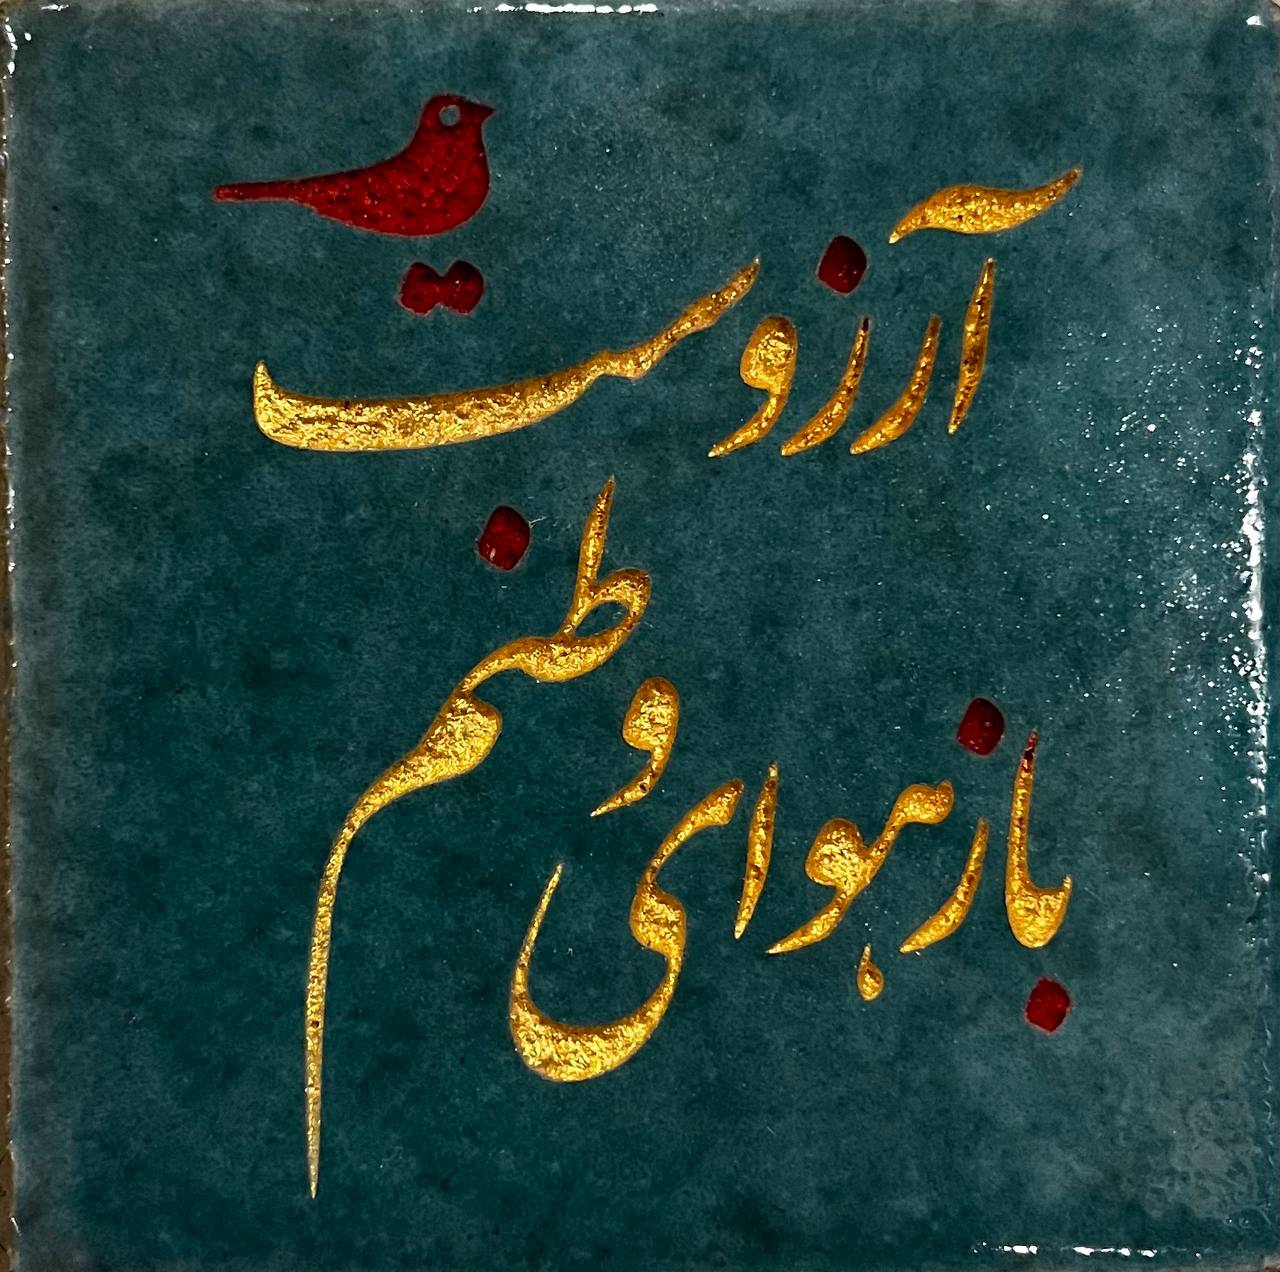 باز هوای وطنم
آرزوست